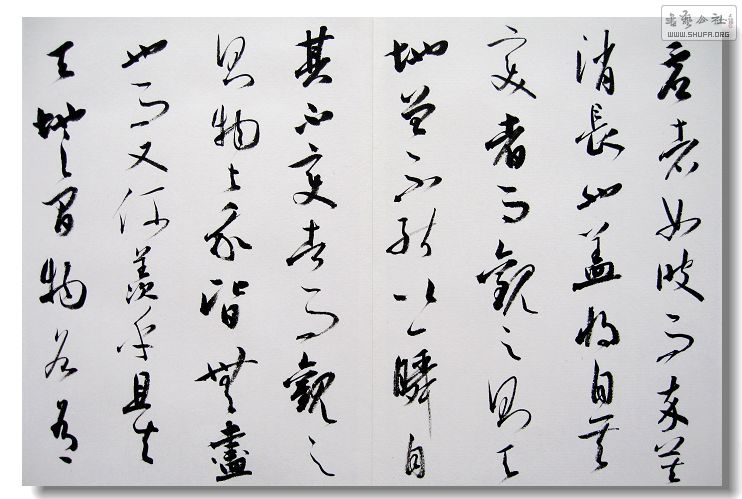 虚者如彼而卒莫
消長也盖将自其
变者而觀之則天
地曾不能以一瞬自
其不變者而觀之
則物与我皆無盡
也而又何羡乎且夫
天地之间物各有
書藝公社
WWW.SHUFA.ORG